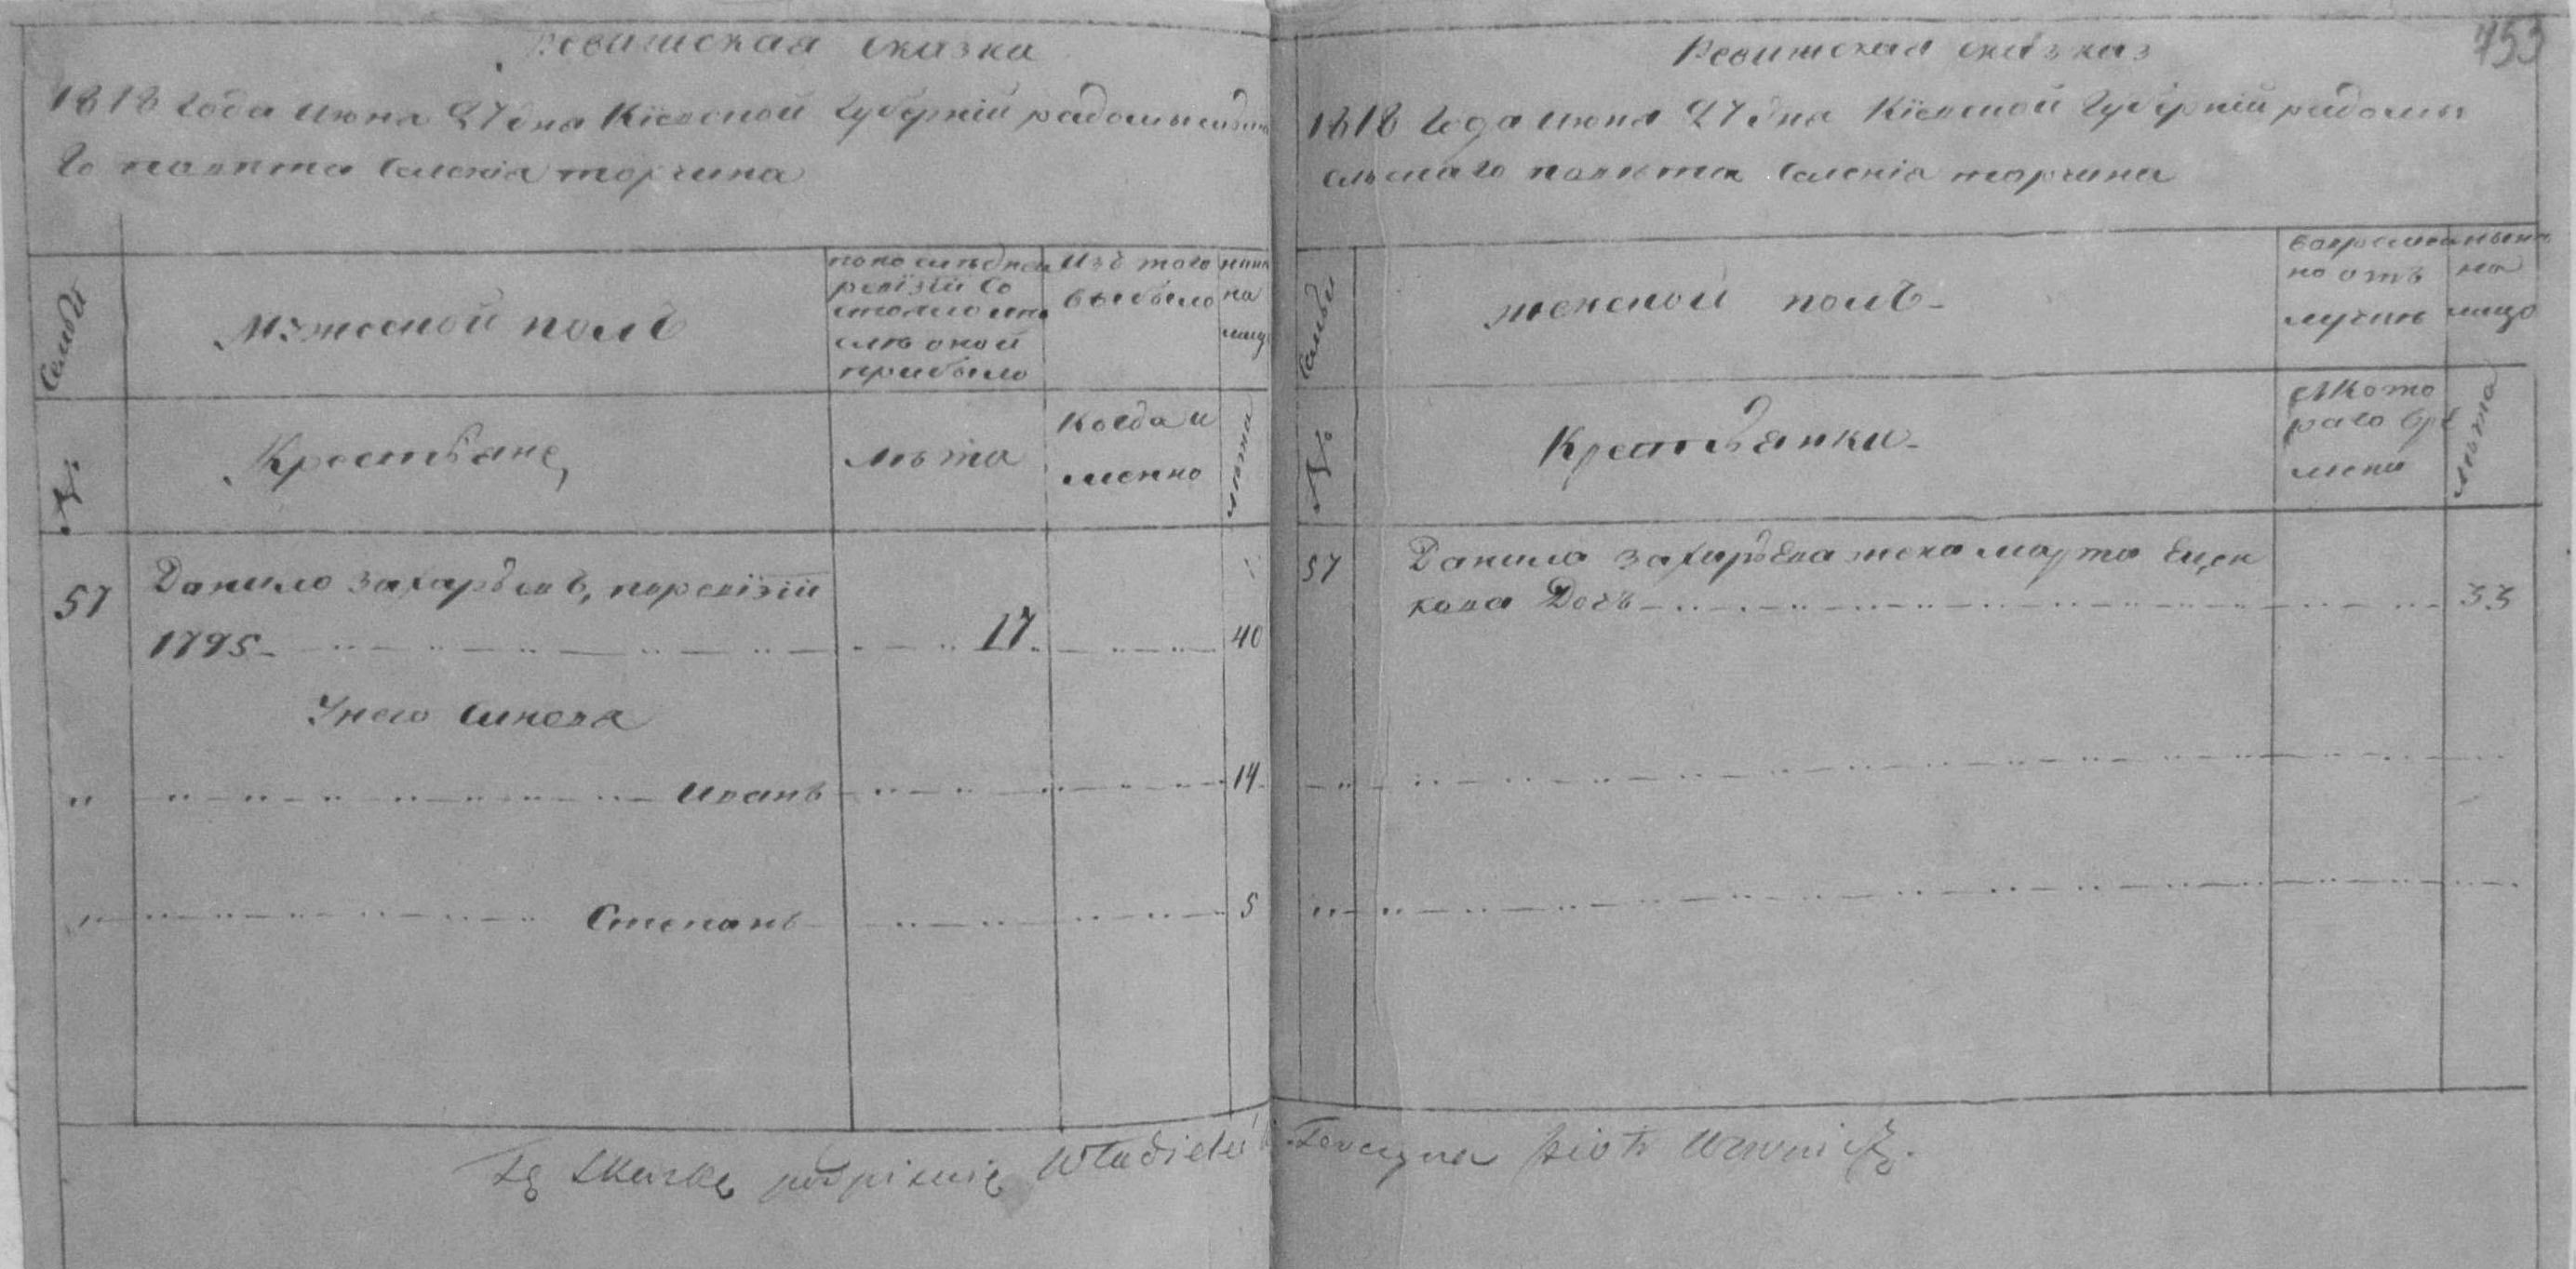 Ревижская сказка
1818 года июня 27 дня Кіевской Губерніи радомысльска
го повѣта Селенія торчина
Семьи
Мужеской полъ
по последнеи
ревізіи со
стояло и по
слѣ оной
прибыло
Изъ того
выбыло
ныне
на
лицо
№
Крестьяне
Лѣта
Когда и
менно
лѣта
57 Данило Захарьевъ, поревізіи
1795 17 40
Унего Синова
Иванъ 14
Степанъ 5
Тę Skazkę podpisuię Władiciel
753
Ревижская сказка
1818 Года июня 27 дня Кіевской Губерніи радомы
сльскаго повѣта Селенія торчина
Семьи
женской полъ
во временно
но отъ
лучкѣ
ныне
на
лицо
№
Крестьянки
съ кото
раго вре
мени
лѣта
57 Данила Захарьева жена Марта
кова Дочь 33
Torczyna Piotr